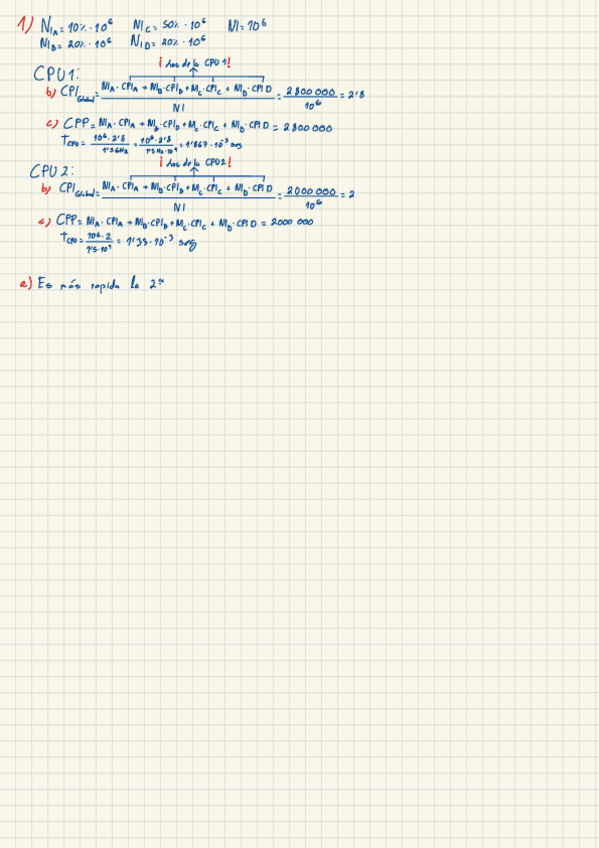 1) NIA = 10% · 10⁶ NIC = 50% · 10⁶ NI = 10⁶
NIB = 20% · 10⁶ NID = 20% · 10⁶
¡ los de la CPU 1!
CPU1:
b) CPIGlobal = (NIA · CPIA + NIB · CPIB + NIC · CPIC + NID · CPID) / NI = 2 800 000 / 10⁶ = 2'8
c) CPP = NIA · CPIA + NIB · CPIB + NIC · CPIC + NID · CPID = 2 800 000
TCPU = 10⁶ · 2'8 / 1'5GHz = 10⁶ · 2'8 / 1'5Hz · 10⁹ = 1'867 · 10⁻³ seg
¡ los de la CPU2!
CPU 2:
b) CPIGlobal = (NIA · CPIA + NIB · CPIB + NIC · CPIC + NID · CPID) / NI = 2000 000 / 10⁶ = 2
c) CPP = NIA · CPIA + NIB · CPIB + NIC · CPIC + NID · CPID = 2000 000
TCPU = 10⁶ · 2 / 1'5 · 10⁹ = 1'33 · 10⁻³ seg
a) Es más rapida la 2ª